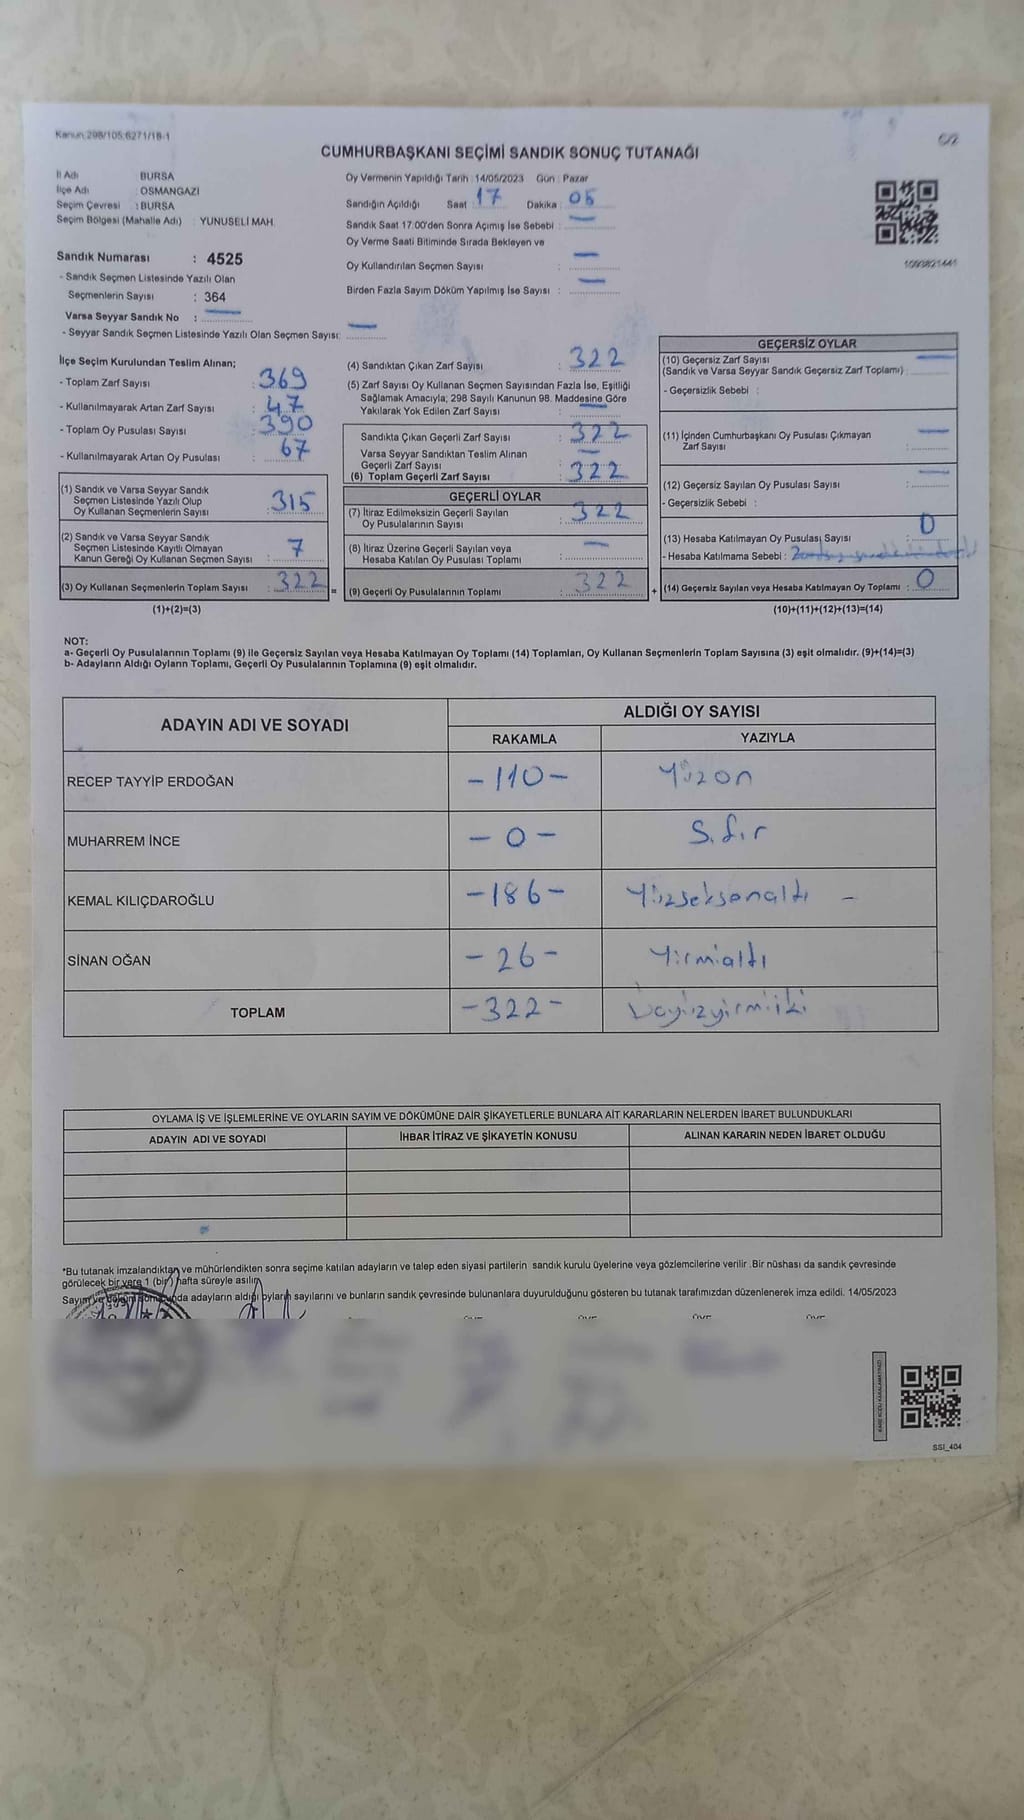 Kanun:298/105;6271/18-1
CUMHURBAŞKANI SEÇİMİ SANDIK SONUÇ TUTANAĞI
İl Adı BURSA
İlçe Adı : OSMANGAZİ
Seçim Çevresi : BURSA
Seçim Bölgesi (Mahalle Adı) : YUNUSELİ MAH.
Oy Vermenin Yapıldığı Tarih : 14/05/2023 Gün : Pazar
Sandığın Açıldığı Saat : 17 Dakika : 05
Sandık Saat 17:00'den Sonra Açımış İse Sebebi :
Oy Verme Saati Bitiminde Sırada Bekleyen ve
Oy Kullandırılan Seçmen Sayısı :
Birden Fazla Sayım Döküm Yapılmış İse Sayısı :
1093821441
Sandık Numarası : 4525
- Sandık Seçmen Listesinde Yazılı Olan
Seçmenlerin Sayısı : 364
Varsa Seyyar Sandık No :
- Seyyar Sandık Seçmen Listesinde Yazılı Olan Seçmen Sayısı:
İlçe Seçim Kurulundan Teslim Alınan;
- Toplam Zarf Sayısı : 369
- Kullanılmayarak Artan Zarf Sayısı : 47
- Toplam Oy Pusulası Sayısı : 390
- Kullanılmayarak Artan Oy Pusulası : 67
(1) Sandık ve Varsa Seyyar Sandık
Seçmen Listesinde Yazılı Olup
Oy Kullanan Seçmenlerin Sayısı : 315
(2) Sandık ve Varsa Seyyar Sandık
Seçmen Listesinde Kayıtlı Olmayan
Kanun Gereği Oy Kullanan Seçmen Sayısı : 7
(3) Oy Kullanan Seçmenlerin Toplam Sayısı : 322
(1)+(2)=(3)
(4) Sandıktan Çıkan Zarf Sayısı : 322
(5) Zarf Sayısı Oy Kullanan Seçmen Sayısından Fazla İse, Eşitliği
Sağlamak Amacıyla; 298 Sayılı Kanunun 98. Maddesine Göre
Yakılarak Yok Edilen Zarf Sayısı :
Sandıkta Çıkan Geçerli Zarf Sayısı : 322
Varsa Seyyar Sandıktan Teslim Alınan
Geçerli Zarf Sayısı :
(6) Toplam Geçerli Zarf Sayısı : 322
GEÇERLİ OYLAR
(7) İtiraz Edilmeksizin Geçerli Sayılan
Oy Pusulalarının Sayısı : 322
(8) İtiraz Üzerine Geçerli Sayılan veya
Hesaba Katılan Oy Pusulası Toplamı :
= (9) Geçerli Oy Pusulalarının Toplamı : 322
GEÇERSİZ OYLAR
(10) Geçersiz Zarf Sayısı
(Sandık ve Varsa Seyyar Sandık Geçersiz Zarf Toplamı) :
- Geçersizlik Sebebi :
(11) İçinden Cumhurbaşkanı Oy Pusulası Çıkmayan
Zarf Sayısı :
(12) Geçersiz Sayılan Oy Pusulası Sayısı :
- Geçersizlik Sebebi :
(13) Hesaba Katılmayan Oy Pusulası Sayısı : 0
- Hesaba Katılmama Sebebi :
+ (14) Geçersiz Sayılan veya Hesaba Katılmayan Oy Toplamı : 0
(10)+(11)+(12)+(13)=(14)
NOT:
a- Geçerli Oy Pusulalarının Toplamı (9) ile Geçersiz Sayılan veya Hesaba Katılmayan Oy Toplamı (14) Toplamları, Oy Kullanan Seçmenlerin Toplam Sayısına (3) eşit olmalıdır. (9)+(14)=(3)
b- Adayların Aldığı Oyların Toplamı, Geçerli Oy Pusulalarının Toplamına (9) eşit olmalıdır.
ADAYIN ADI VE SOYADI ALDIĞI OY SAYISI
RAKAMLA YAZIYLA
RECEP TAYYİP ERDOĞAN -110- Yüzon
MUHARREM İNCE -0- Sıfır
KEMAL KILIÇDAROĞLU -186- Yüzseksenaltı -
SİNAN OĞAN -26- Yirmialtı
TOPLAM -322- Üçyüzyirmiiki
OYLAMA İŞ VE İŞLEMLERİNE VE OYLARIN SAYIM VE DÖKÜMÜNE DAİR ŞİKAYETLERLE BUNLARA AİT KARARLARIN NELERDEN İBARET BULUNDUKLARI
ADAYIN ADI VE SOYADI İHBAR İTİRAZ VE ŞİKAYETİN KONUSU ALINAN KARARIN NEDEN İBARET OLDUĞU
*Bu tutanak imzalandıktan ve mühürlendikten sonra seçime katılan adayların ve talep eden siyasi partilerin sandık kurulu üyelerine veya gözlemcilerine verilir .Bir nüshası da sandık çevresinde
görülecek bir yere 1 (bir) hafta süreyle asılır.
Sayım ve döküm sonucunda adayların aldığı oyların sayılarını ve bunların sandık çevresinde bulunanlara duyurulduğunu gösteren bu tutanak tarafımızdan düzenlenerek imza edildi. 14/05/2023
KARE KODU KARALAMAYINIZ!
SSI_404